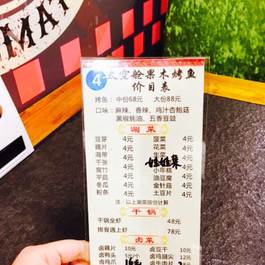 MAT
4
太空舱果木烤鱼
价目表
烤鱼：中份68元 大份88元
口味：麻辣、香辣、鸡汁杏鲍菇
黑椒蚝油、五香豆豉
涮菜
豆芽 4元 菠菜 4元
藕片 4元 花菜 4元
海带 4元 生菜 4元
千张 4元 娃娃菜 4元
腐竹 4元 小年糕 4元
平菇 4元 油豆腐 4元
冬瓜 4元 金针菇 4元
粉条 4元 土豆片 4元
注：以上涮菜按份计算
干锅
干锅全虾 48元
排餐遇上虾 78元
卤菜
卤藕片 10元 卤豆干 10元
卤鸭头 5元 卤鸡翅尖 12元
卤鸡爪 卤牛肉片